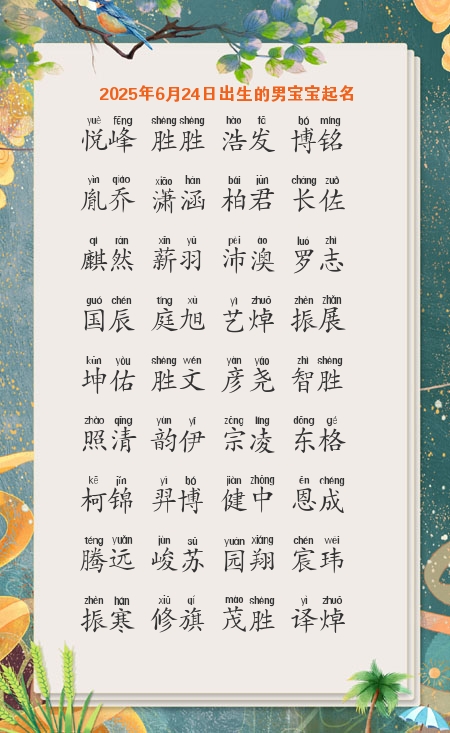 2025年6月24日出生的男宝宝起名
yuè fēng shèng shèng hào fā bó míng
悦峰 胜胜 浩发 博铭
yìn qiáo xiāo hán bǎi jūn cháng zuǒ
胤乔 潇涵 柏君 长佐
qí rán xīn yǔ pèi ào luó zhì
麒然 薪羽 沛澳 罗志
guó chén tíng xù yì zhuō zhèn zhǎn
国辰 庭旭 艺焯 振展
kūn yòu shèng wén yàn yáo zhì shèng
坤佑 胜文 彦尧 智胜
zhào qīng yùn yī zōng líng dōng gé
照清 韵伊 宗凌 东格
kē jǐn yì bó jiàn zhōng ēn chéng
柯锦 羿博 健中 恩成
téng yuǎn jùn sū yuán xiáng chén wěi
腾远 峻苏 园翔 宸玮
zhèn hán xiū qí mào shèng yì zhuō
振寒 修旗 茂胜 译焯